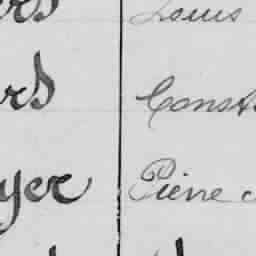 ers Louis
ers Const
yer Pierre